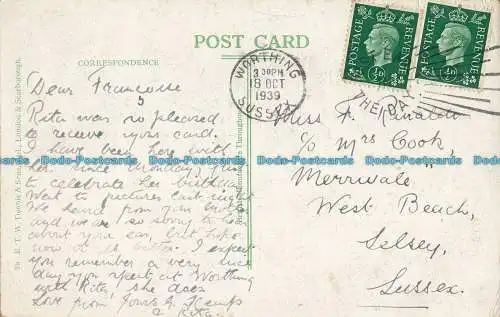 POST CARD
CORRESPONDENCE
WORTHING
3 30PM
18 OCT
1939
SUSSEX
POSTAGE REVENUE
POSTAGE REVENUE
½D
½D
THE
Dear Françoise
Rita was so pleased
to receive your card.
I have been here with
her since Monday, just
to celebrate her birthday.
Went to pictures last night
We heard from
and we are so sorry to hear
about your ear, but hope
now it is better. I expect
you remember a very nice
day you spent at Worthing
with Rita, she does
Love from
& Rita.
Miss F.
c/o Mrs Cook,
"Merrivale"
West Beach,
Selsey,
Sussex.
E. T. W. Dennis & Sons, Ltd., London & Scarborough.
Dodo-Postcards Dodo-Postcards Dodo-Postcards Dodo-Postcards